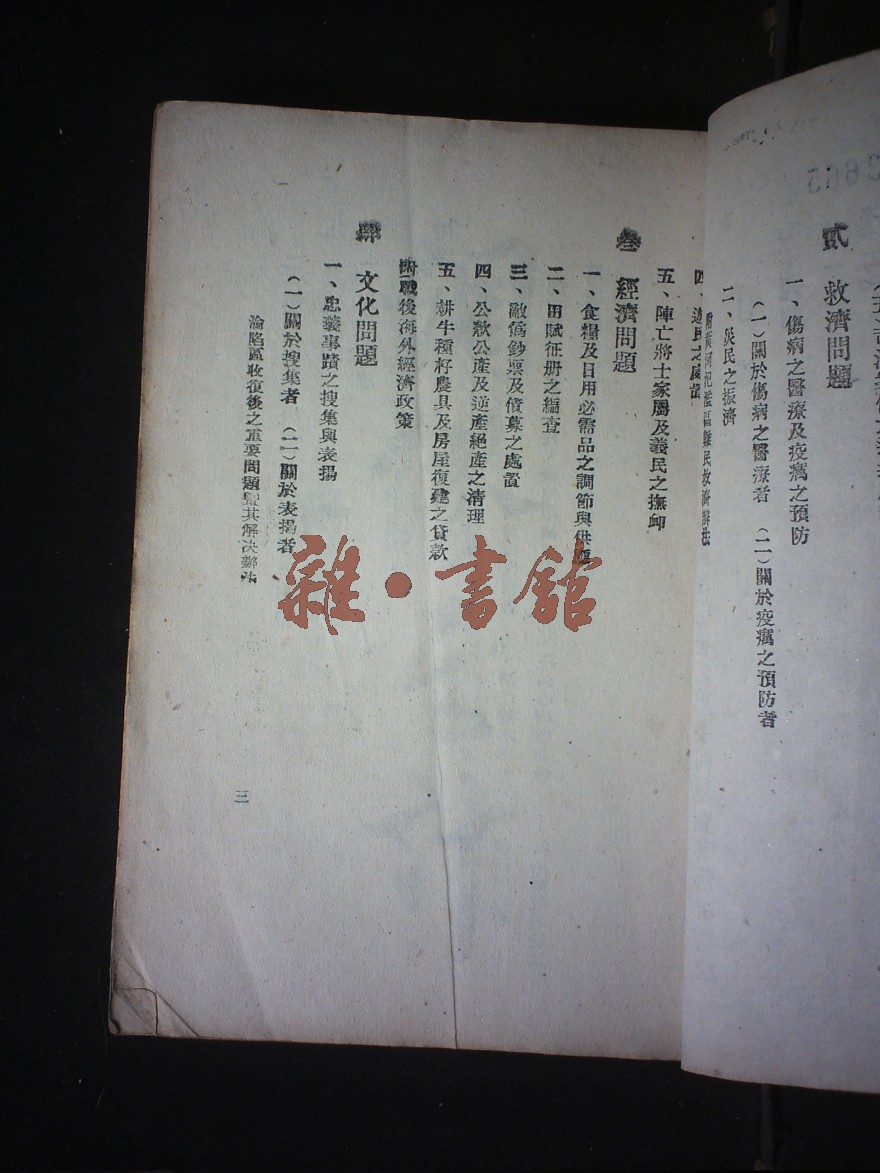 貳 救濟問題
一、傷病之醫療及疫癘之預防
（一）關於傷病之醫療者 （二）關於疫癘之預防者
二、災民之振濟
四、遊民之處置
五、陣亡將士家屬及義民之撫卹
叁 經濟問題
一、食糧及日用必需品之調節與供應
二、田賦征册之編查
三、敵僞鈔票及債募之處置
四、公款公產及逆產絕產之清理
五、耕牛種籽農具及房屋復建之貸款
附戰後海外經濟政策
肆 文化問題
一、忠義事蹟之搜集與表揚
（一）關於搜集者 （二）關於表揚者
淪陷區收復後之重要問題暨其解决辦法
三
雜·書館